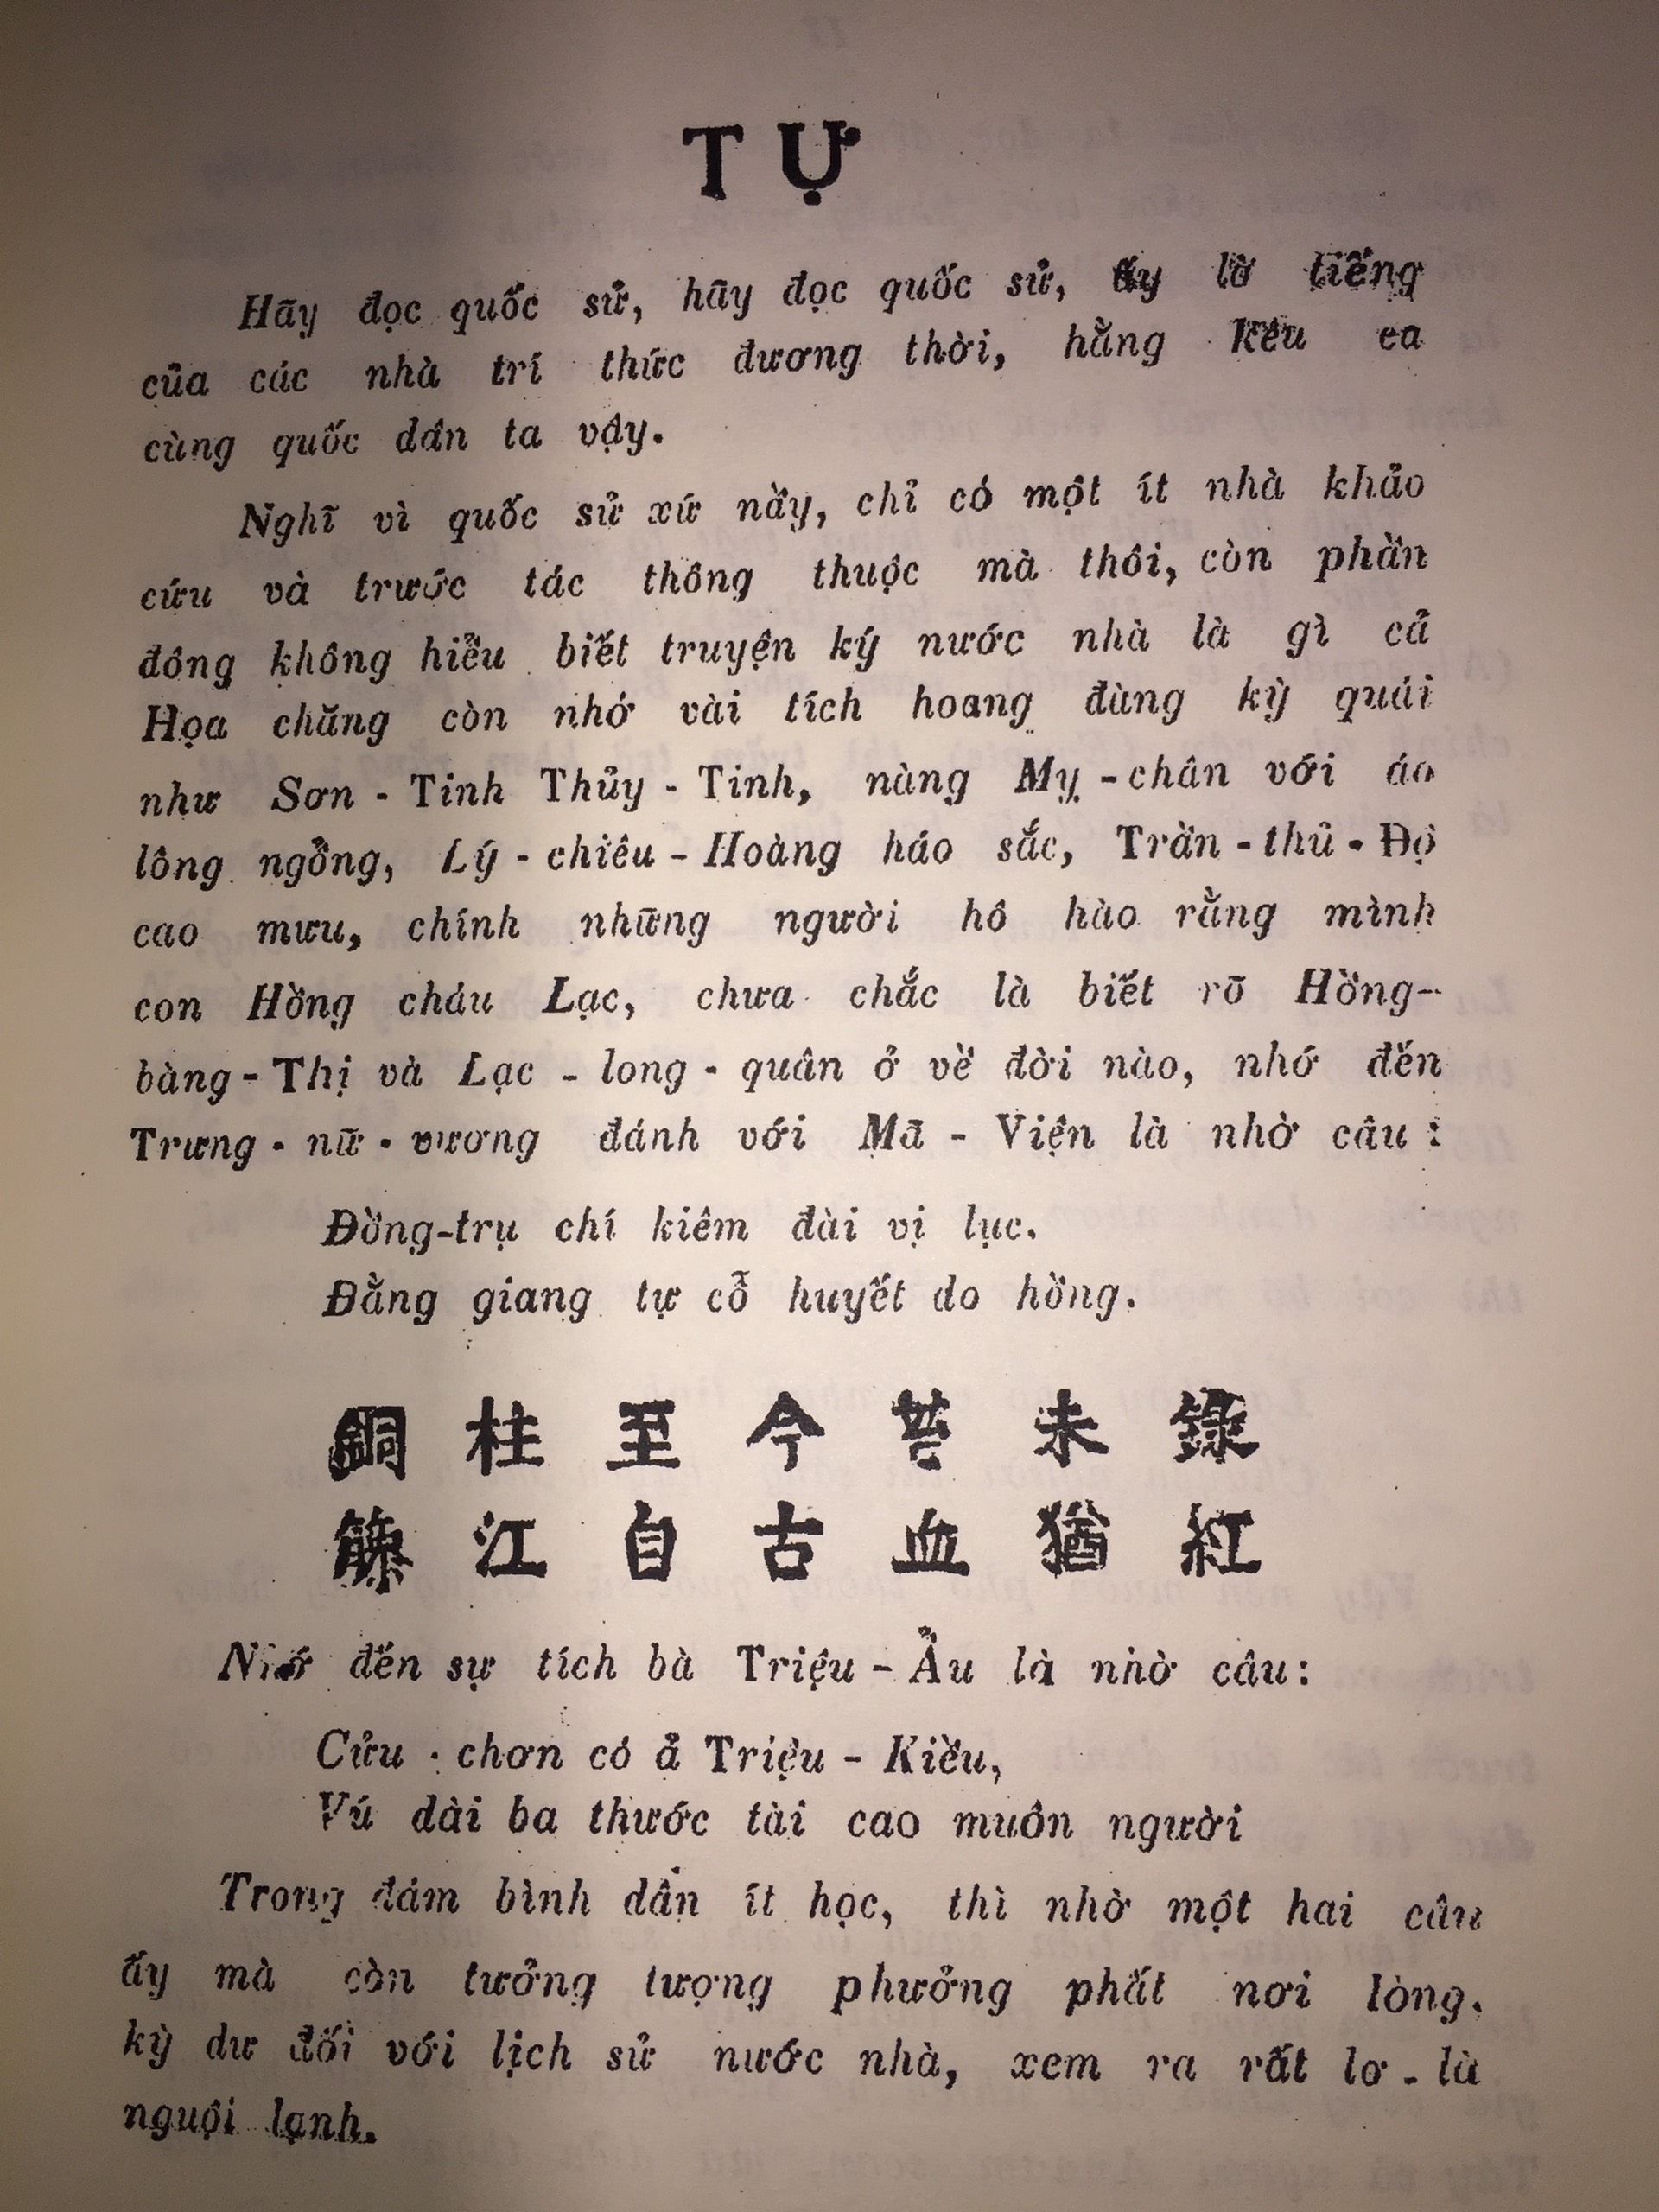 TỰ
Hãy đọc quốc sử, hãy đọc quốc sử, ấy là tiếng
của các nhà trí thức đương thời, hằng kêu ca
cùng quốc dân ta vậy.
Nghĩ vì quốc sử xứ nầy, chỉ có một ít nhà khảo
cứu và trước tác thông thuộc mà thôi, còn phần
đông không hiểu biết truyện ký nước nhà là gì cả
Họa chăng còn nhớ vài tích hoang đàng kỳ quái
như Sơn - Tinh Thủy - Tinh, nàng Mỵ - chân với áo
lông ngỗng, Lý - chiêu - Hoàng háo sắc, Trần - thủ - Độ
cao mưu, chính những người hô hào rằng mình
con Hồng cháu Lạc, chưa chắc là biết rõ Hồng-
bàng - Thị và Lạc - long - quân ở về đời nào, nhớ đến
Trưng - nữ - vương đánh với Mã - Viện là nhờ câu :
Đồng-trụ chí kiêm đài vị lục.
Đằng giang tự cỗ huyết do hồng.
銅柱至今苔未錄
籐江自古血猶紅
Nhớ đến sự tích bà Triệu - Ẩu là nhờ câu:
Cửu - chơn có ả Triệu - Kiều,
Vú dài ba thước tài cao muôn người
Trong đám bình dân ít học, thì nhờ một hai câu
ấy mà còn tưởng tượng phưởng phất nơi lòng.
kỳ dư đối với lịch sử nước nhà, xem ra rất lơ - là
nguội lạnh.